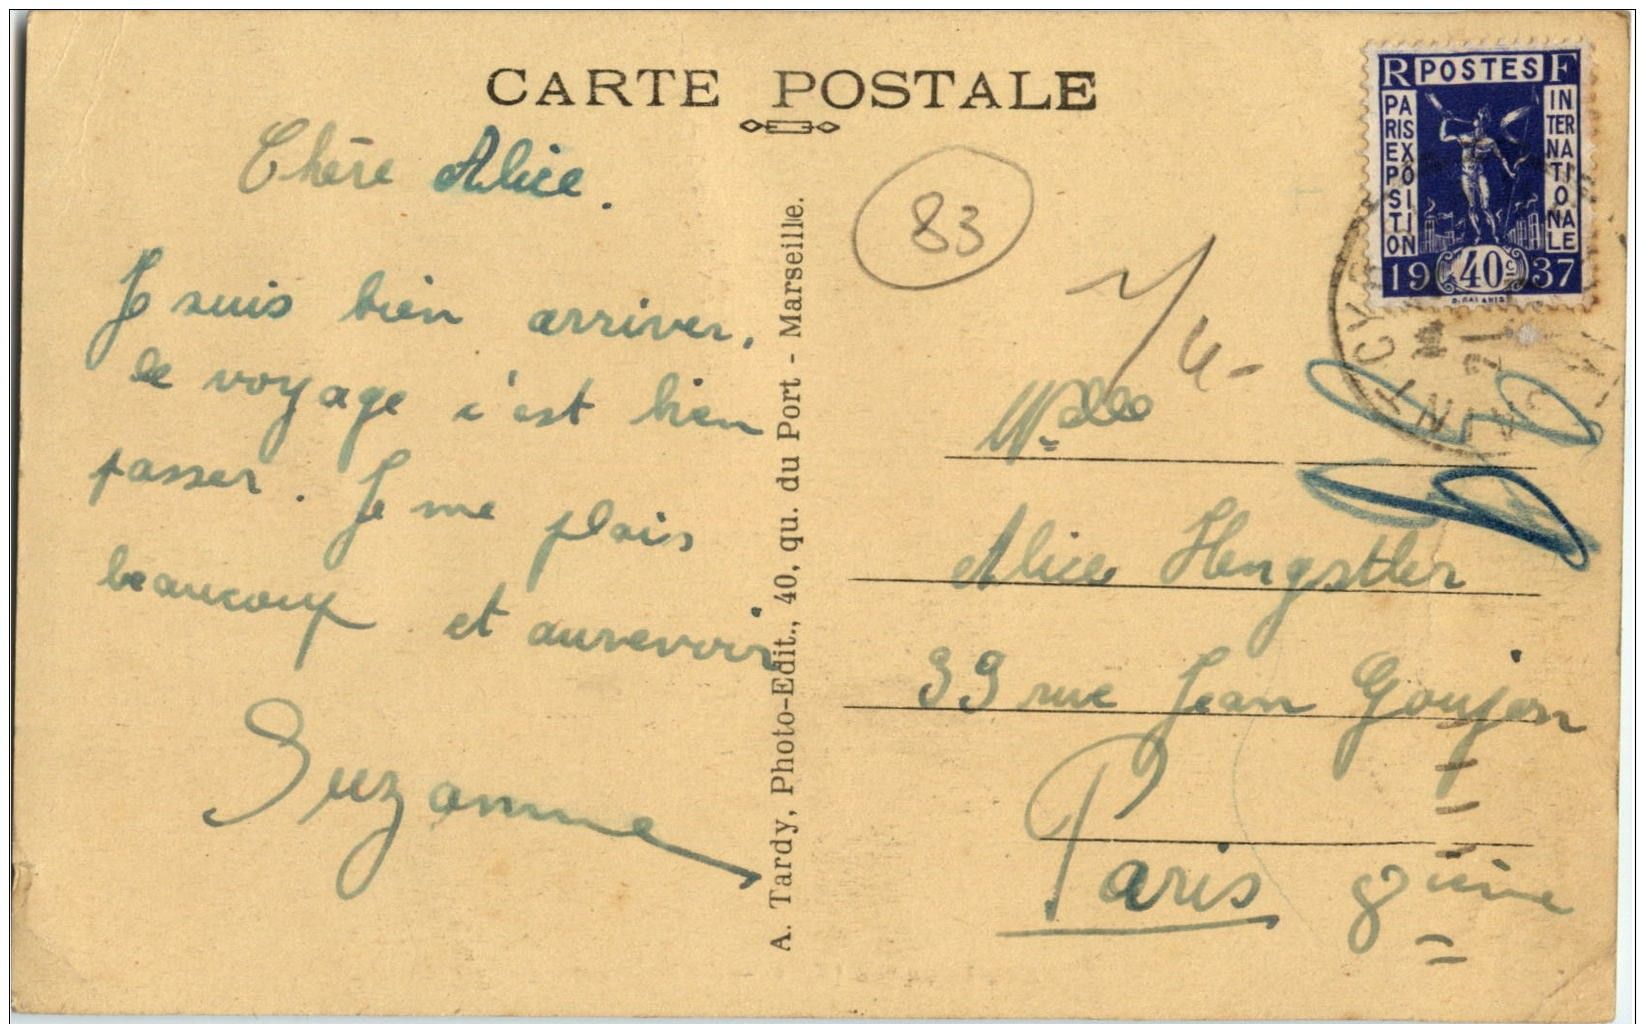 CARTE POSTALE
Chère Alice.
Je suis bien arriver.
le voyage c'est bien
passer. Je me plais
beaucoup et aurevoir
Suzanne
A. Tardy, Photo-Edit., 40, qu. du Port - Marseille.
83
R POSTES F
PARIS EXPOSITION
INTERNATIONALE
19 40c 37
Mdlle
Alice Hengstler
39 rue Jean Goujon
Paris 8ième